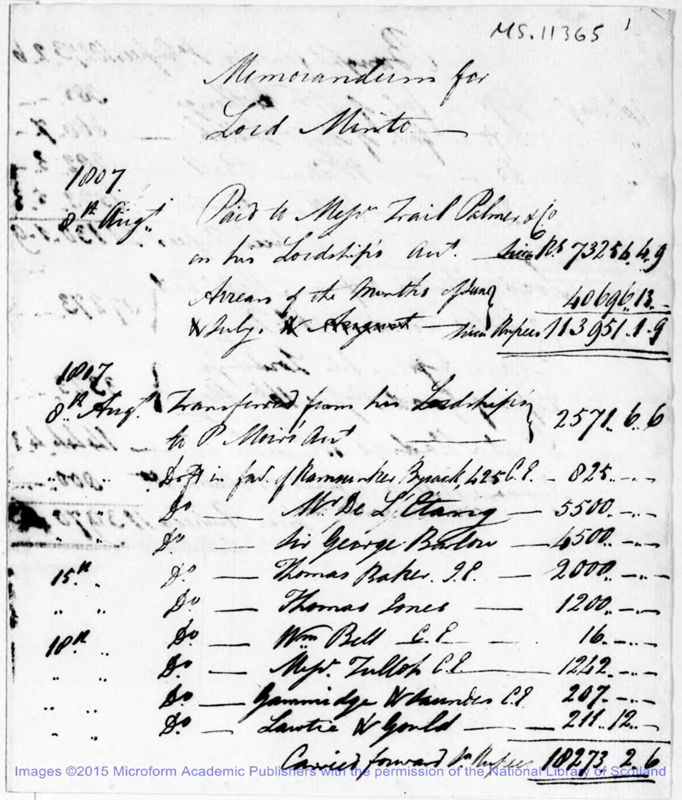 MS. 11365 1
Memorandum for
Lord Minto
1807.
8th Augt. Paid to Messrs. Trail Palmer & Co
on his Lordship's Acct. Sicca Rs 73256.4.9
Arrears of the Months of June 40696.13.-
& July. & August Sicca Rupees 113951.1.9
1807
8th Augt. Transferred from his Lordship's 2571.6.6
to P Moirs Acct
Do in fav. of 425 C.E. - 825.-.-
" " Do Mr. De L' 5500.-.-
" Do Sir George Barlow 4500.-.-
15th " Do Thomas Baker. 2000.-.-
" " Do Thomas Jones 1200.-.-
18th " Do Wm Bell C.E 16.-.-
" " Do Messrs. Tulloh C.E 1242.-.-
" " Do Gammidge & Saunders C.E. 207.-.-
" " Do Lawtie & Gould 211.12.-
Carried forward Sa Rupees 18273.2.6
Images ©2015 Microform Academic Publishers with the permission of the National Library of Scotland